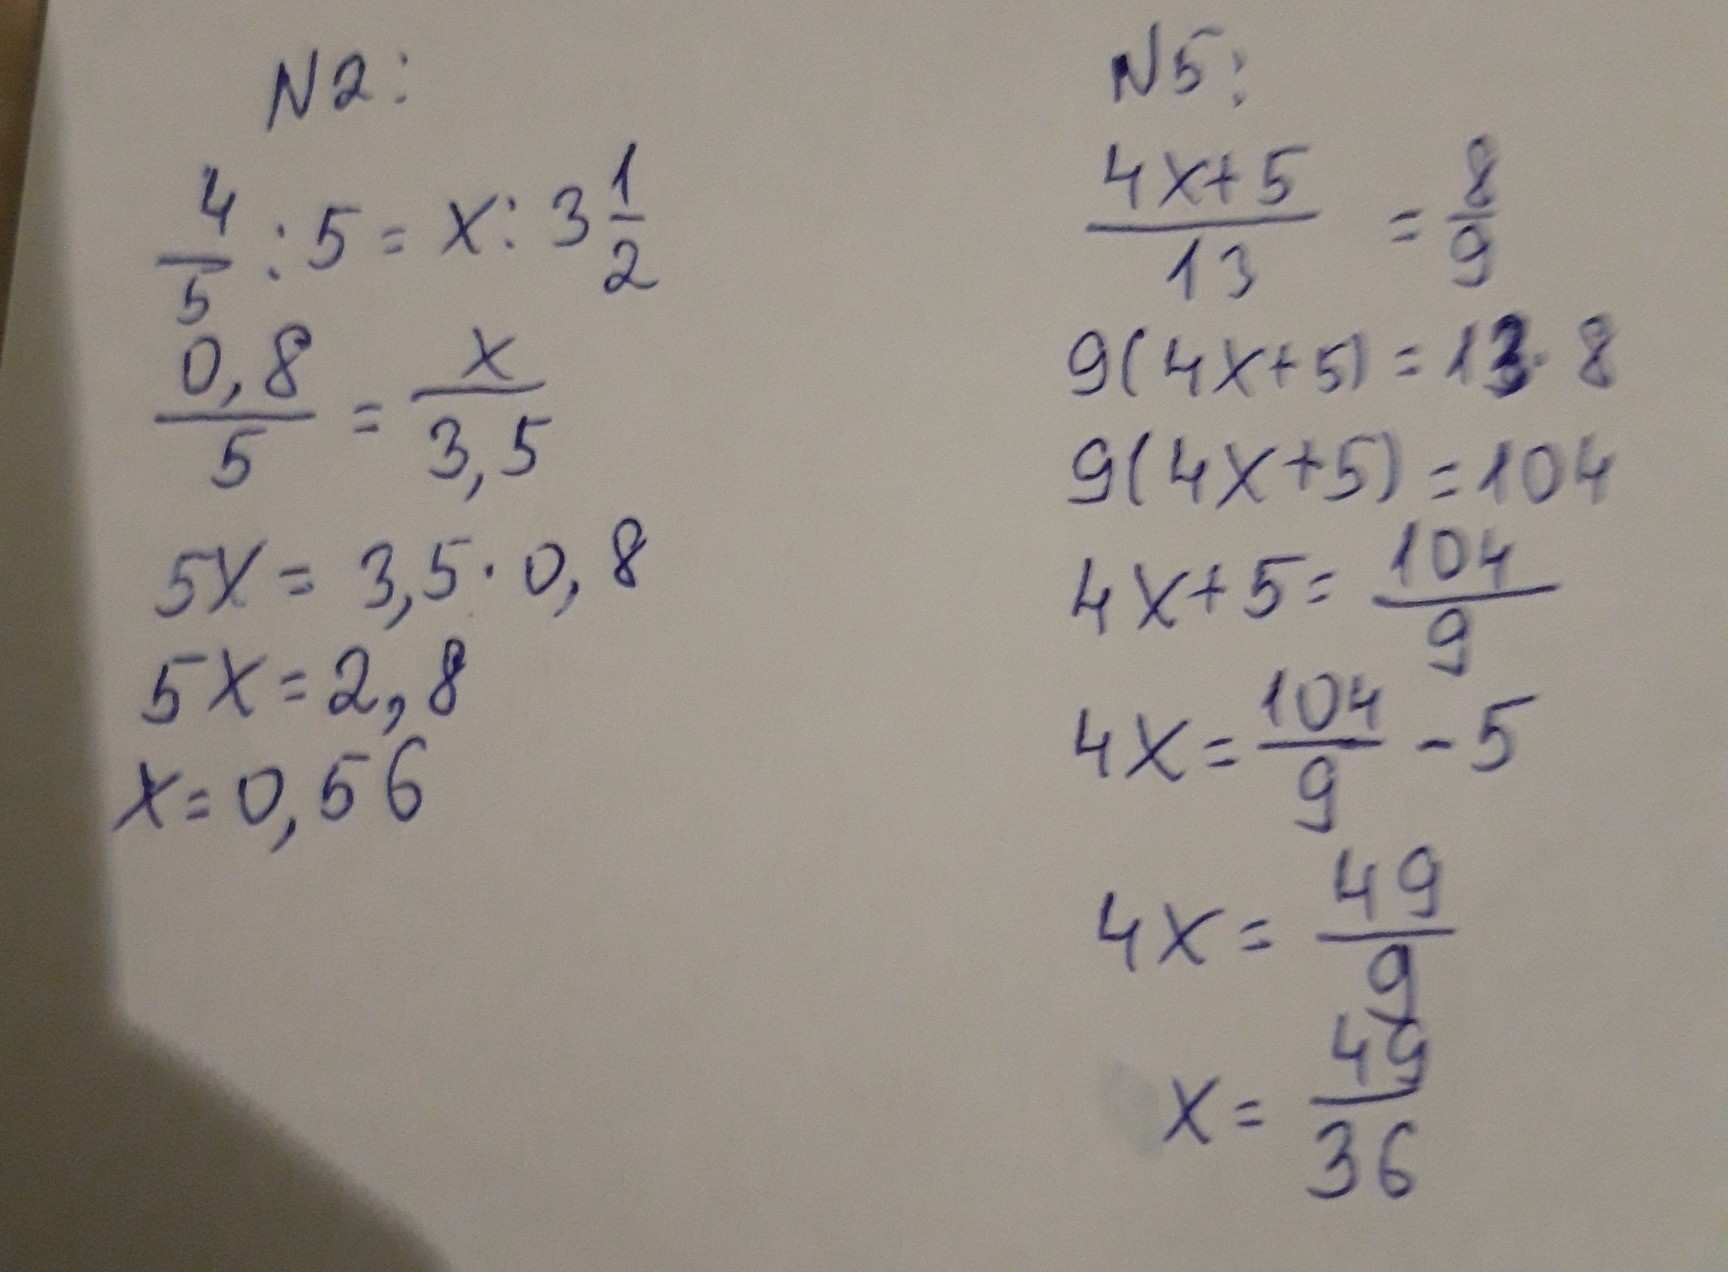 N2:
4/5 : 5 = x : 3 1/2
0,8/5 = x/3,5
5x = 3,5 · 0,8
5x = 2,8
x = 0,56
N5:
4x+5/13 = 8/9
9(4x+5) = 13 · 8
9(4x+5) = 104
4x+5 = 104/9
4x = 104/9 - 5
4x = 49/9
x = 49/36